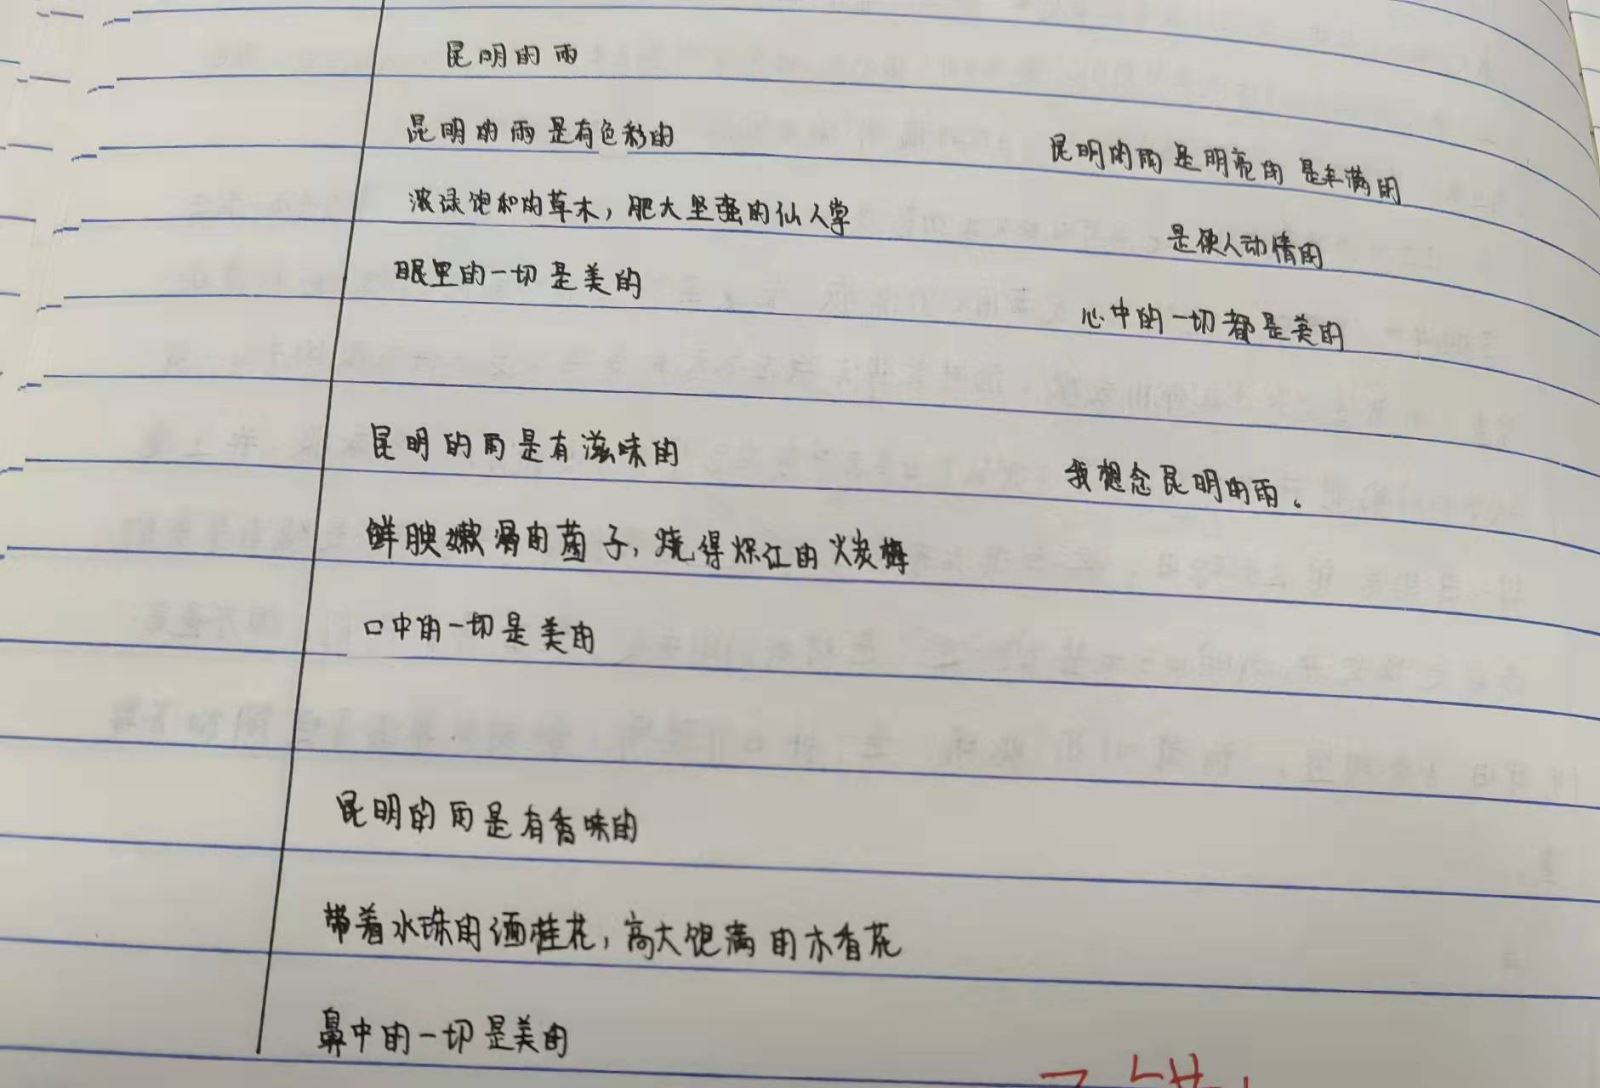 昆明的雨
昆明的雨是有色彩的
浓绿饱和的草木，肥大坚强的仙人掌
眼里的一切是美的
昆明的雨是有滋味的
鲜腴嫩滑的菌子，烧得炽红的火炭梅
口中的一切是美的
昆明的雨是有香味的
带着水珠的缅桂花，高大饱满的木香花
鼻中的一切是美的
昆明的雨是明亮的 是丰满的
是使人动情的
心中的一切都是美的
我想念昆明的雨。